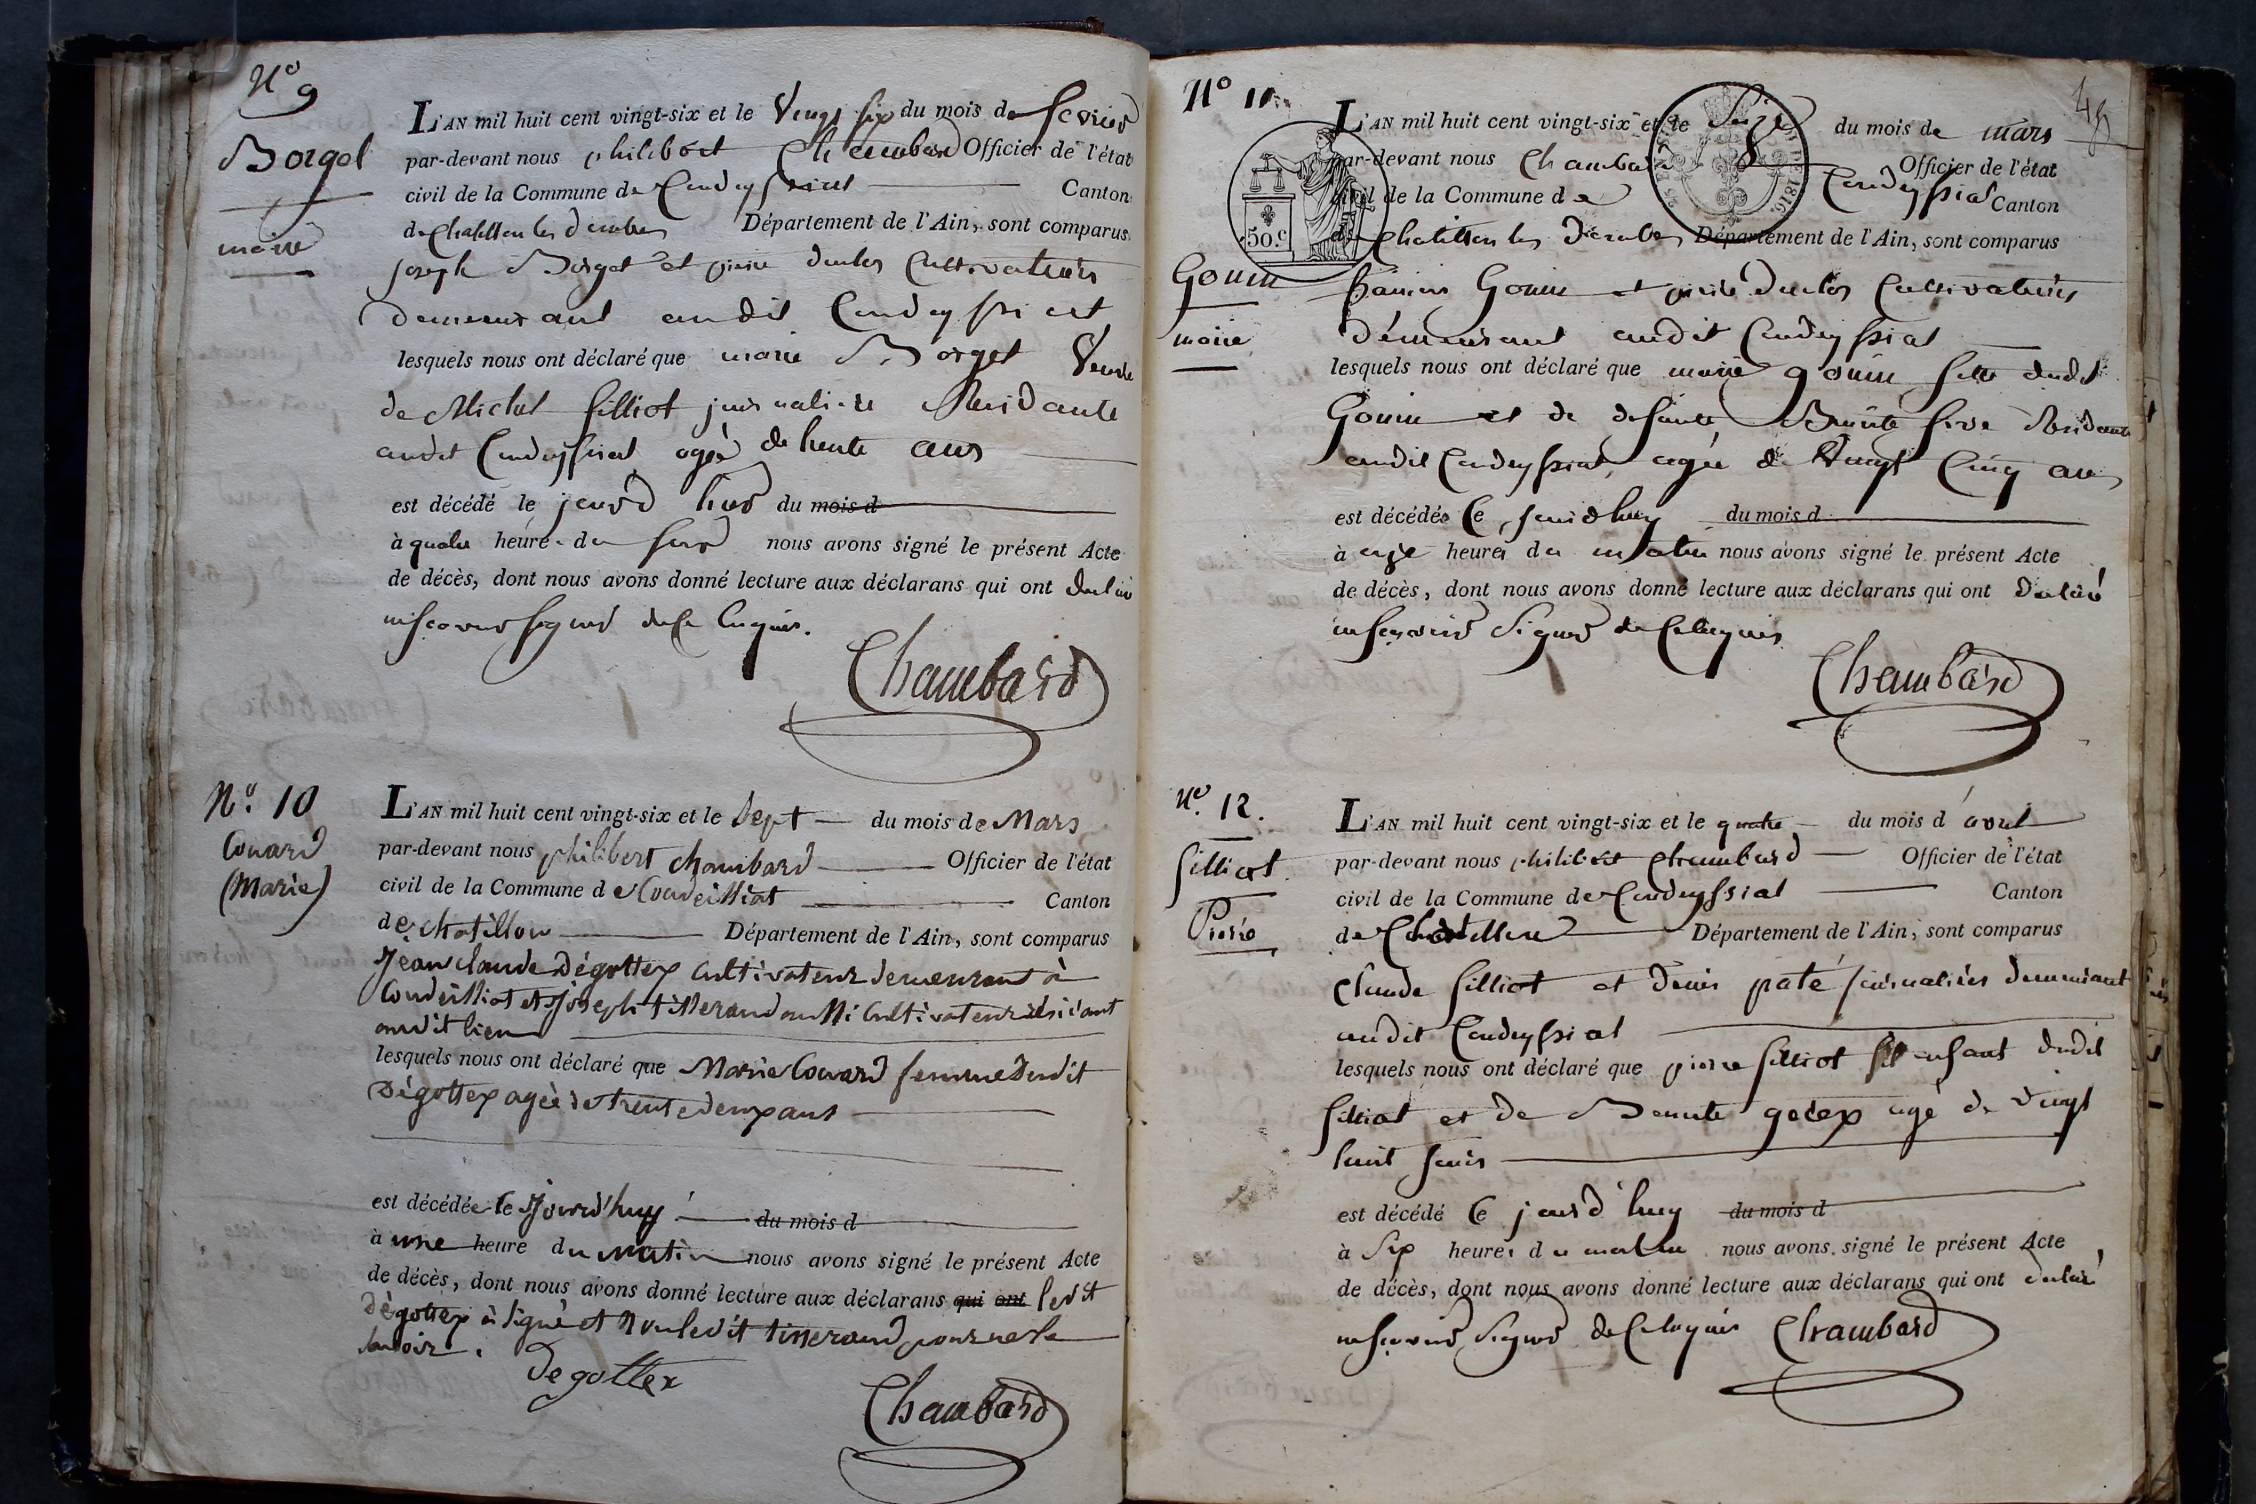 N° 9
Borget
marie
L'AN mil huit cent vingt-six et le Vingt six du mois de fevrier
par-devant nous philibert Chambard Officier de l'état
civil de la Commune de Condeyssiat Canton
de Chatillon les dombes Département de l'Ain, sont comparus
joseph Borget et pierre duclos Cultivateurs
demeurant audit Condeyssiat
lesquels nous ont déclaré que marie Borget Veuve
de Michel filliot journaliere Residante
audit Condeyssiat agée de trente ans
est décédé le jourd huy du mois d
à quatre heure du soir nous avons signé le présent Acte
de décès, dont nous avons donné lecture aux déclarans qui ont declaré
ne scavoir signer de ce enquis.
Chambard
N° 10
Couard
(Marie)
L'AN mil huit cent vingt-six et le Sept du mois de Mars
par-devant nous philibert Chambard Officier de l'état
civil de la Commune de Condeissiat Canton
de Chatillon Département de l'Ain, sont comparus
Jean claude Dégottex cultivateur demeurant à
Condeissiat et Joseph tisserand aussi Cultivateur résidant
audit lieu
lesquels nous ont déclaré que Marie Couard femme dudit
Dégottex agée de trente deux ans
est décédée le Jourd'huy du mois d
à une heure du matin nous avons signé le présent Acte
de décès, dont nous avons donné lecture aux déclarans qui ont ledit
Dégottex à signé et Non ledit tisserand pour ne le
savoir.
Degottex
Chambard
48
N° 11
Gouin
marie
50.c
DE 1816
L'AN mil huit cent vingt-six et le Seize du mois de mars
par-devant nous Chambard Officier de l'état
civil de la Commune de Condeyssiat Canton
de Chatillon les Dombes Département de l'Ain, sont comparus
francois Gouin et pierre duclos Cultivateurs
demeurant audit Condeyssiat
lesquels nous ont déclaré que marie gouin fille dudit
Gouin et de defunte Benoite Residante
audit Condeyssiat, agée de Vingt Cinq ans
est décédée Ce jourd huy du mois d
à onze heures du matin nous avons signé le présent Acte
de décès, dont nous avons donné lecture aux déclarans qui ont declaré
ne scavoir Signer de Ce enquis
Chambard
N° 12.
filliot
Pierre
L'AN mil huit cent vingt-six et le quatre du mois d'avril
par-devant nous philibert Chambard Officier de l'état
civil de la Commune de Condeyssiat Canton
de Chatillon Département de l'Ain, sont comparus
Claude filliot et Denis paté journaliers demeurant
audit Condeyssiat
lesquels nous ont déclaré que pierre filliot enfant dudit
filliot et de Benoite agé de vingt
huit jours
est décédé Ce jourd'huy du mois d
à Six heures du matin nous avons signé le présent Acte
de décès, dont nous avons donné lecture aux déclarans qui ont declaré
ne scavoir Signer de Ce enquis Chambard